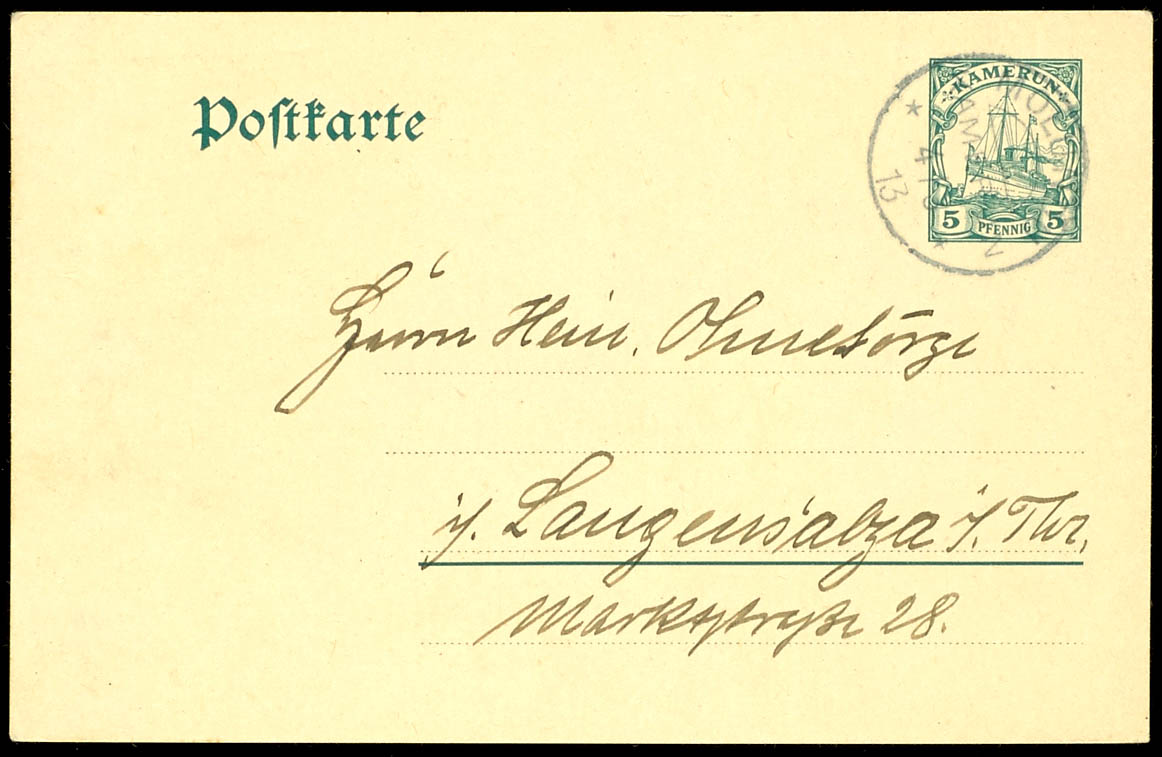 Postkarte
KAMERUN
5 PFENNIG 5
4/3
13
Herrn Hein. Ohnesorge
i/. Langensalza i/. Thr.
Marktstraße 28.